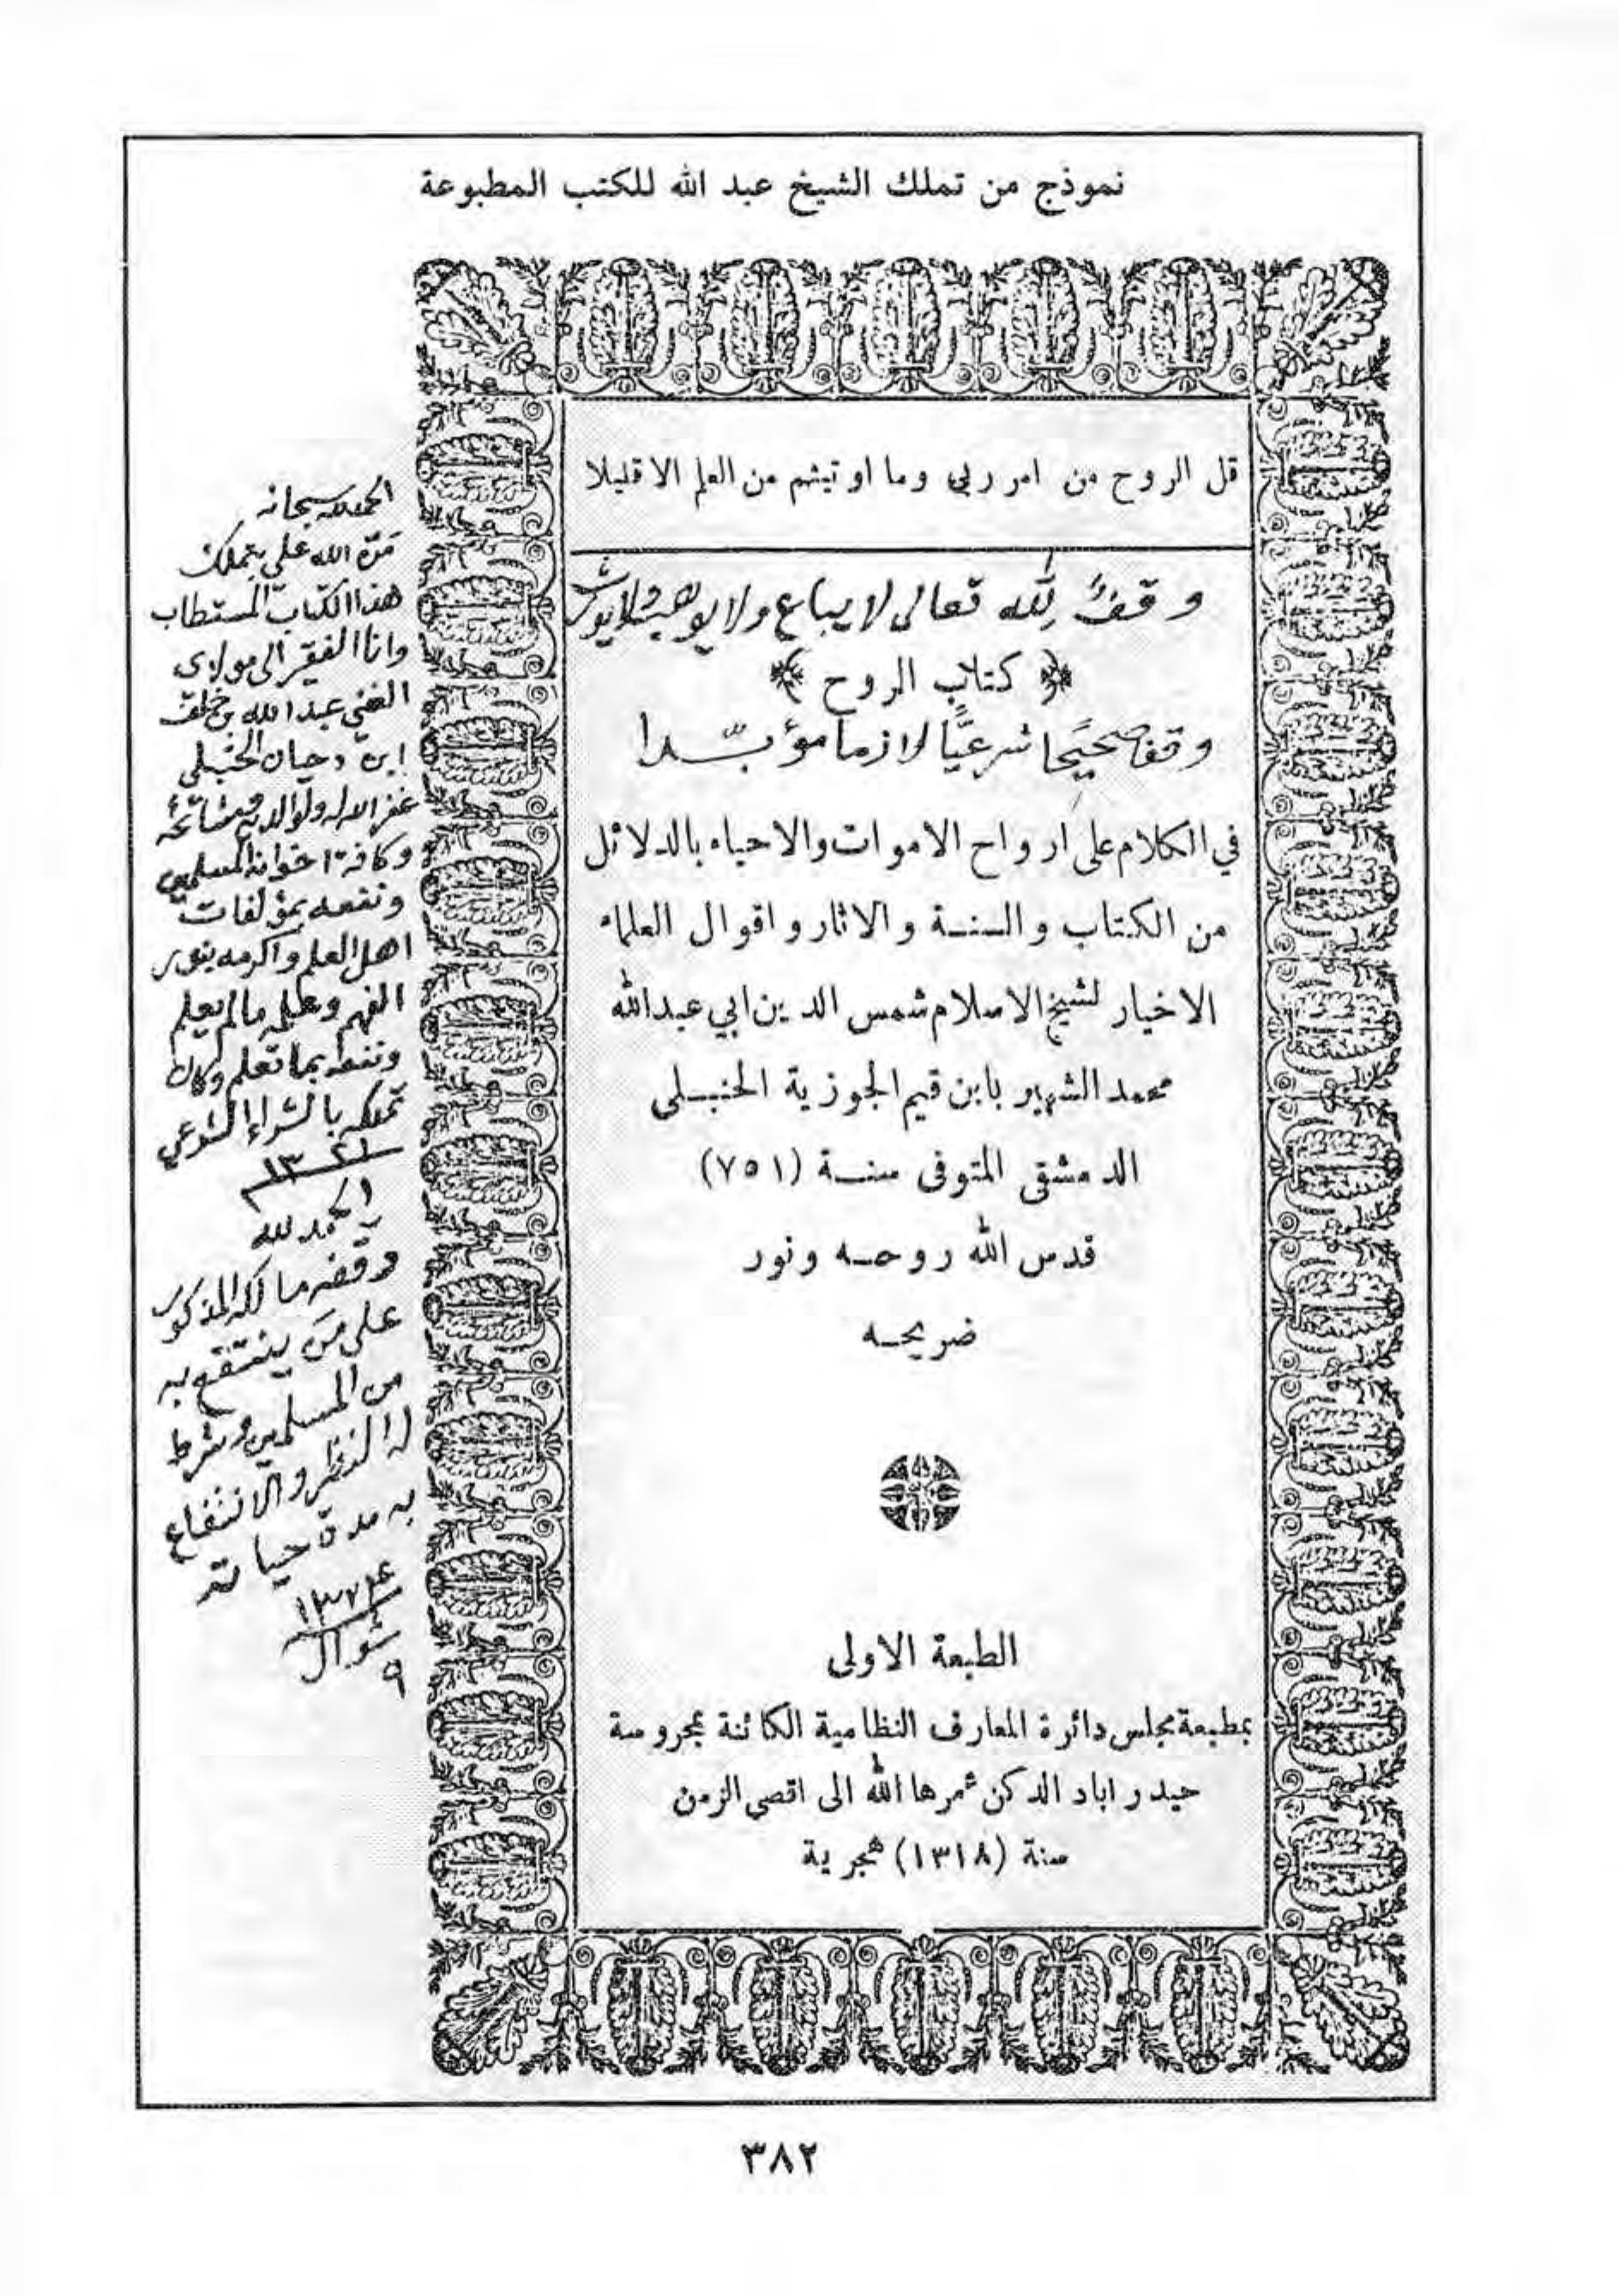 نموذج من تملك الشيخ عبد الله للكتب المطبوعة
قل الروح من امر ربي وما اوتيتم من العلم الا قليلا
وقفٌ لله تعالى لا يباع ولا يوهب ولا يورث
﴿ كتاب الروح ﴾
وقفا صحيحًا شرعيًّا لازما مؤبّدا
في الكلام على ارواح الاموات والاحياء بالدلائل
من الكتاب والسنة والاثار واقوال العلماء
الاخيار لشيخ الاسلام شمس الدين ابي عبدالله
محمد الشهير بابن قيم الجوزية الحنبلى
الدمشقى المتوفى سنة (٧٥١)
قدس الله روحه ونور
ضريحه
الطبعة الاولى
بمطبعة مجلس دائرة المعارف النظامية الكائنة بمحروسة
حيدر اباد الدكن عمرها الله الى اقصى الزمن
سنة (١٣١٨) هجرية
الحمد لله سبحانه
مَنّ الله علي بتملك
هذا الكتاب المستطاب
وانا الفقير الى مولاى
الغني عبد الله بن خلف
ابن دحيان الحنبلي
غفر الله له ولوالديه ومشائخه
وكافة اخوانه المسلمين
ونفعه بمؤلفات
اهل العلم واكرمه بنور
الفهم وعلمه مالم يعلم
ونفعه بما تعلم وكان
تملكه بالشراء الشرعي
١٣٢١
الحمد لله
وقفه مالكه المذكور
على من ينتفع به
من المسلمين وشرط
له النظر والانتفاع
به مدة حياته
١٣٢٤
شوال
٩
٣٨٢